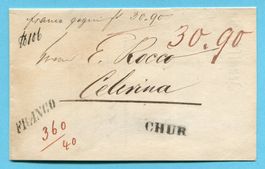 franco gegen fr 30.90
30.90
E. Rocco
Celerina
FRANCO
360
40
CHUR